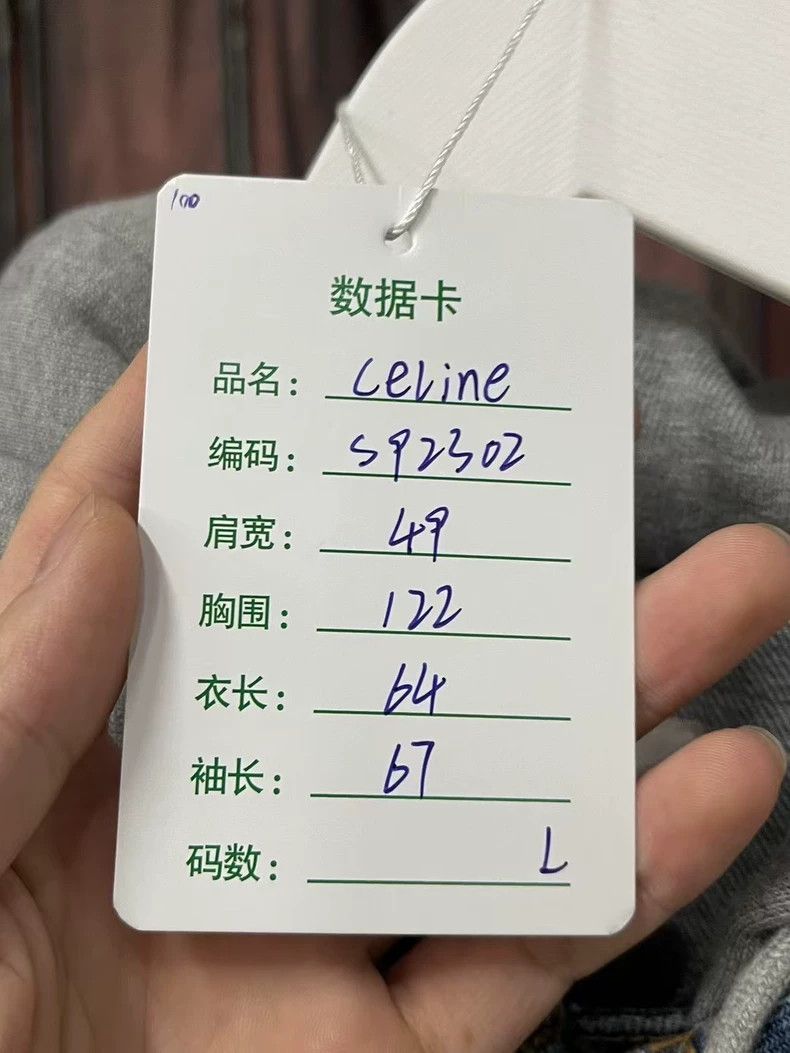 100
数据卡
品名: Celine
编码: S92302
肩宽: 49
胸围: 122
衣长: 64
袖长: 67
码数: L